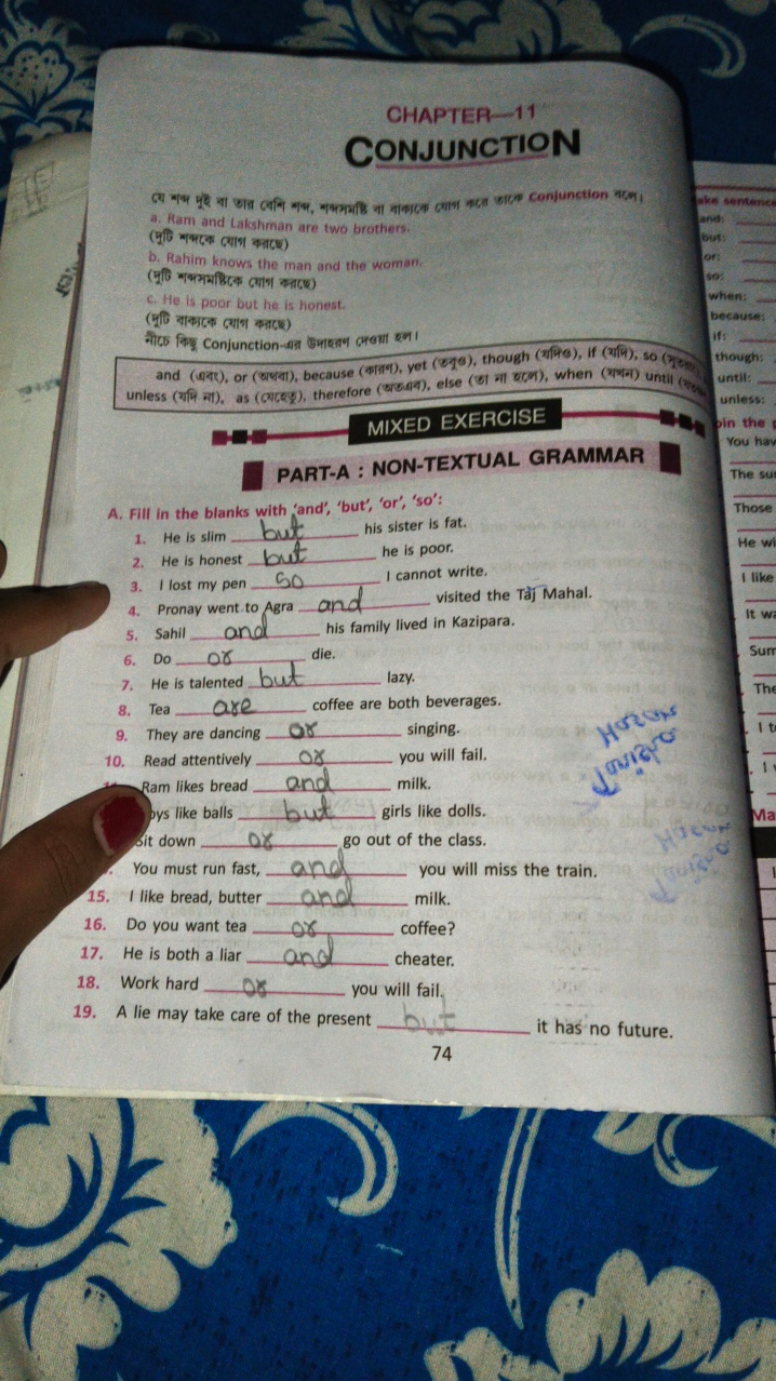 CHAPTER—11
CONJUNCTION
যে শব্দ দুই বা তার বেশি শব্দ, শব্দসমষ্টি বা বাক্যকে যোগ করে তাকে Conjunction বলে।
a. Ram and Lakshman are two brothers.
(দুটি শব্দকে যোগ করছে)
b. Rahim knows the man and the woman.
(দুটি শব্দসমষ্টিকে যোগ করছে)
c. He is poor but he is honest.
(দুটি বাক্যকে যোগ করছে)
নীচে কিছু Conjunction-এর উদাহরণ দেওয়া হল।
and (এবং), or (অথবা), because (কারণ), yet (তবুও), though (যদিও), if (যদি), so (সুতরাং),
unless (যদি না), as (যেহেতু), therefore (অতএব), else (তা না হলে), when (যখন) until
MIXED EXERCISE
PART-A : NON-TEXTUAL GRAMMAR
A. Fill in the blanks with 'and', 'but', 'or', 'so':
1. He is slim but his sister is fat.
2. He is honest but he is poor.
3. I lost my pen so I cannot write.
4. Pronay went to Agra and visited the Taj Mahal.
5. Sahil and his family lived in Kazipara.
6. Do or die.
7. He is talented but lazy.
8. Tea are coffee are both beverages.
9. They are dancing or singing.
10. Read attentively or you will fail.
Ram likes bread and milk.
oys like balls but girls like dolls.
Sit down or go out of the class.
You must run fast, and you will miss the train.
15. I like bread, butter and milk.
16. Do you want tea or coffee?
17. He is both a liar and cheater.
18. Work hard or you will fail.
19. A lie may take care of the present but it has no future.
74
Hasan
Tanisha
Hasan
Tanisha
ake sentence
and:
but:
or:
so:
when:
because:
if:
though:
until:
unless:
oin the
You hav
The su
Those
He wi
I like
It wa
Sum
The
I t
I
Ma